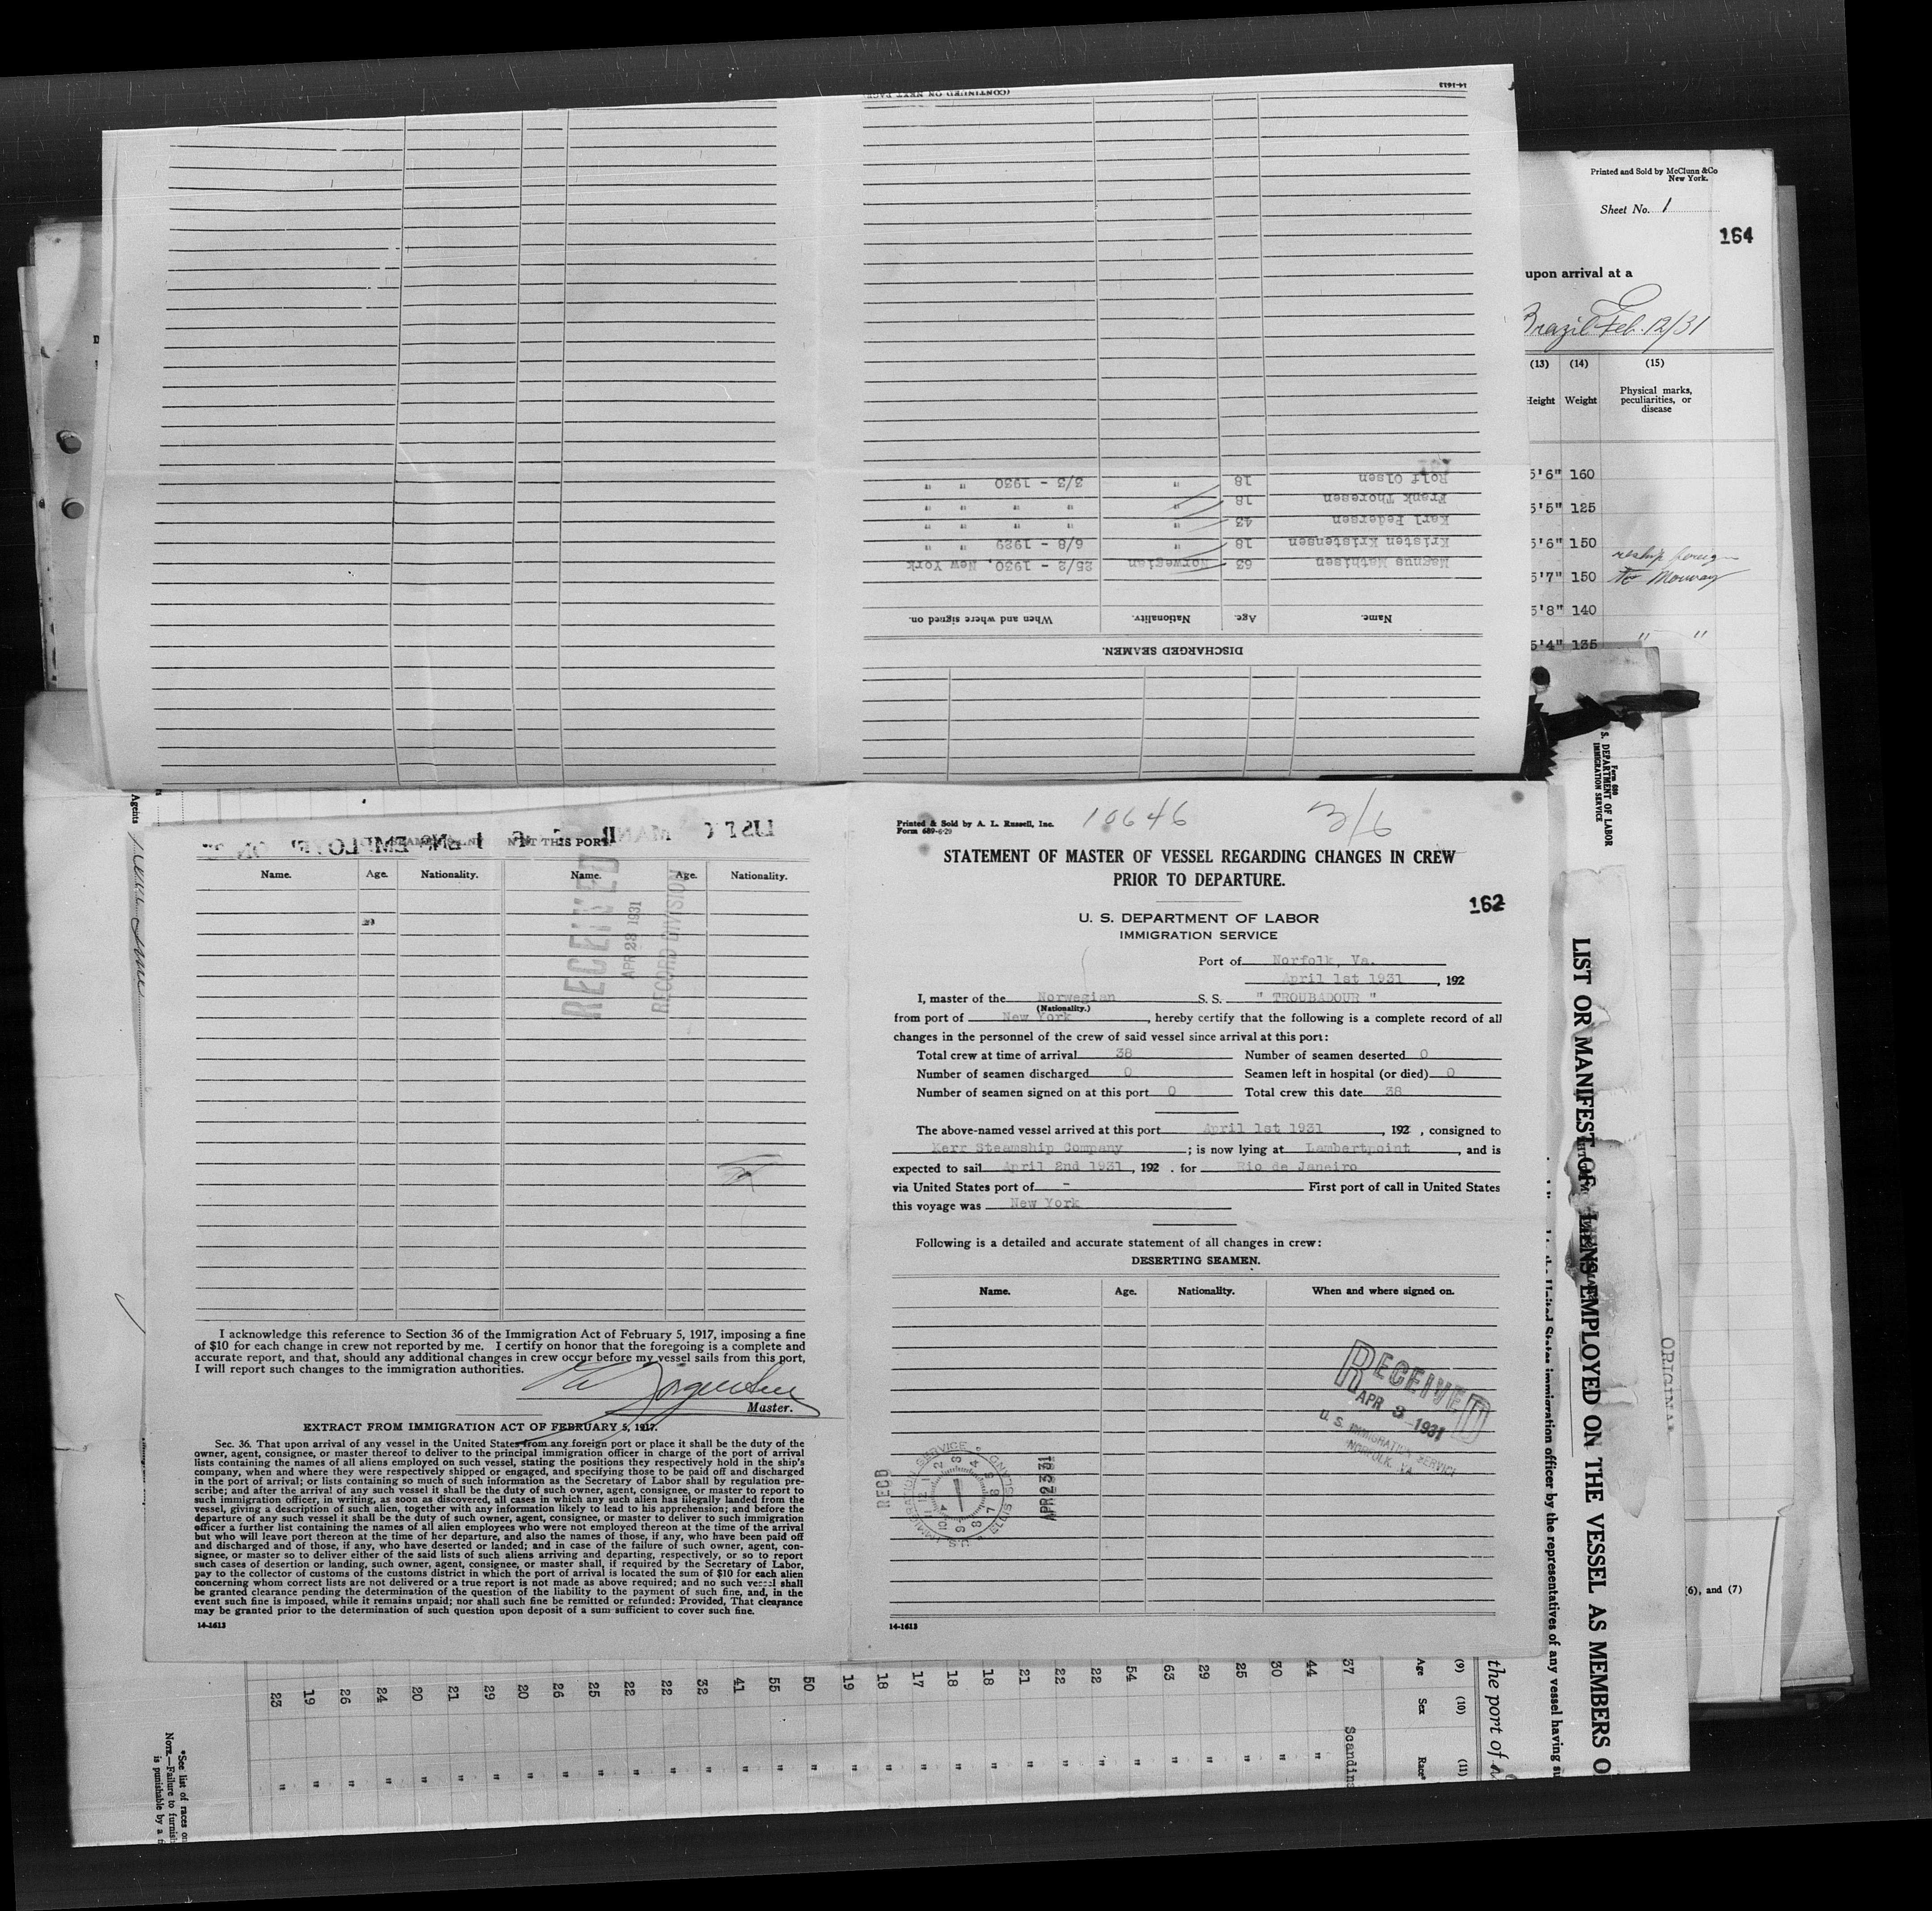 (CONTINUED ON NEXT PAGE)
14-1613
DISCHARGED SEAMEN.
Name. Age. Nationality. When and where signed on.
Magnus Mathisen 63 Norwegian 25/2 - 1930, New York
Kristen Kristensen 18 " 6/8 - 1929 " "
Karl Pedersen 43 " " " " "
Frank Thoresen 18 " " " " "
Rolf Olsen 18 " 3/3 - 1930 " "
Printed and Sold by McClunn & Co
New York.
Sheet No. 1
164
upon arrival at a
Brazil Feb. 12/31
(13) (14) (15)
Height Weight Physical marks, peculiarities, or disease
5'6" 160
5'5" 125
5'6" 150
reship foreign
5'7" 150
5'8" 140
5'4" 135 " "
Form 680
S. DEPARTMENT OF LABOR
IMMIGRATION SERVICE
Agents
N AT THIS PORT
Name. Age. Nationality. Name. Age. Nationality.
RECEIVED
APR 23 1931
RECORD DIVISION
I acknowledge this reference to Section 36 of the Immigration Act of February 5, 1917, imposing a fine
of $10 for each change in crew not reported by me. I certify on honor that the foregoing is a complete and
accurate report, and that, should any additional changes in crew occur before my vessel sails from this port,
I will report such changes to the immigration authorities.
Master.
EXTRACT FROM IMMIGRATION ACT OF FEBRUARY 5, 1917.
Sec. 36. That upon arrival of any vessel in the United States from any foreign port or place it shall be the duty of the
owner, agent, consignee, or master thereof to deliver to the principal immigration officer in charge of the port of arrival
lists containing the names of all aliens employed on such vessel, stating the positions they respectively hold in the ship's
company, when and where they were respectively shipped or engaged, and specifying those to be paid off and discharged
in the port of arrival; or lists containing so much of such information as the Secretary of Labor shall by regulation pre-
scribe; and after the arrival of any such vessel it shall be the duty of such owner, agent, consignee, or master to report to
such immigration officer, in writing, as soon as discovered, all cases in which any such alien has illegally landed from the
vessel, giving a description of such alien, together with any information likely to lead to his apprehension; and before the
departure of any such vessel it shall be the duty of such owner, agent, consignee, or master to deliver to such immigration
officer a further list containing the names of all alien employees who were not employed thereon at the time of the arrival
but who will leave port thereon at the time of her departure, and also the names of those, if any, who have been paid off
and discharged and of those, if any, who have deserted or landed; and in case of the failure of such owner, agent, con-
signee, or master so to deliver either of the said lists of such aliens arriving and departing, respectively, or so to report
such cases of desertion or landing, such owner, agent, consignee, or master shall, if required by the Secretary of Labor,
pay to the collector of customs of the customs district in which the port of arrival is located the sum of $10 for each alien
concerning whom correct lists are not delivered or a true report is not made as above required; and no such vessel shall
be granted clearance pending the determination of the question of the liability to the payment of such fine, and, in the
event such fine is imposed, while it remains unpaid; nor shall such fine be remitted or refunded: Provided, That clearance
may be granted prior to the determination of such question upon deposit of a sum sufficient to cover such fine.
14-1613
Printed & Sold by A. L. Russell, Inc.
Form 689-6-29
10646
3/6
STATEMENT OF MASTER OF VESSEL REGARDING CHANGES IN CREW
PRIOR TO DEPARTURE.
162
U. S. DEPARTMENT OF LABOR
IMMIGRATION SERVICE
Port of Norfolk, Va.
April 1st 1931, 192
I, master of the Norwegian S. S. " TROUBADOUR "
(Nationality.)
from port of New York, hereby certify that the following is a complete record of all
changes in the personnel of the crew of said vessel since arrival at this port:
Total crew at time of arrival 38 Number of seamen deserted 0
Number of seamen discharged 0 Seamen left in hospital (or died) 0
Number of seamen signed on at this port 0 Total crew this date 38
The above-named vessel arrived at this port April 1st 1931, 192 , consigned to
Kerr Steamship Company ; is now lying at Lambertpoint, and is
expected to sail April 2nd 1931, 192 . for Rio de Janeiro
via United States port of - First port of call in United States
this voyage was New York
Following is a detailed and accurate statement of all changes in crew:
DESERTING SEAMEN.
Name. Age. Nationality. When and where signed on.
RECEIVED
APR 3 1931
U. S. IMMIGRATION SERVICE
NORFOLK, VA.
RECD
U.S. IMMIGRATION SERVICE ELLIS ISLAND
APR 23 31
14-1613
LIST OR MANIFEST OF ALIENS EMPLOYED ON THE VESSEL AS MEMBERS O
United States immigration officer by the representatives of any vessel having su
ORIGINAL
(6), and (7)
the port of
(9) (10) (11)
Age Sex Race*
37 Scandin
44 "
30 "
25 "
29 "
63 "
54 "
22 "
22 "
21 "
18 "
18 "
17 "
18 "
19 "
50 "
55 "
41 "
32 "
22 "
22 "
25 "
26 "
20 "
29 "
21 "
20 "
24 "
26 "
19 "
23 "
*See list of races on
NOTE.—Failure to furnish
is punishable by a f